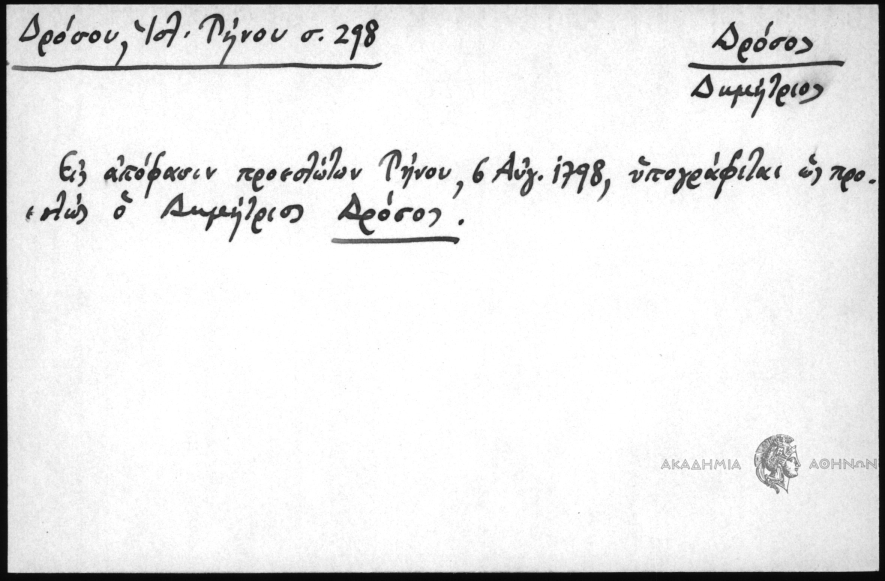 Δρόσου, Ἱστ. Τήνου σ. 298
Δρόσος
Δημήτριος
Εἰς ἀπόφασιν προεστώτων Τήνου, 6 Αὐγ. 1798, ὑπογράφεται ὡς προ-
εστὼς ὁ Δημήτριος Δρόσος.
ΑΚΑΔΗΜΙΑ ΑΘΗΝΩΝ